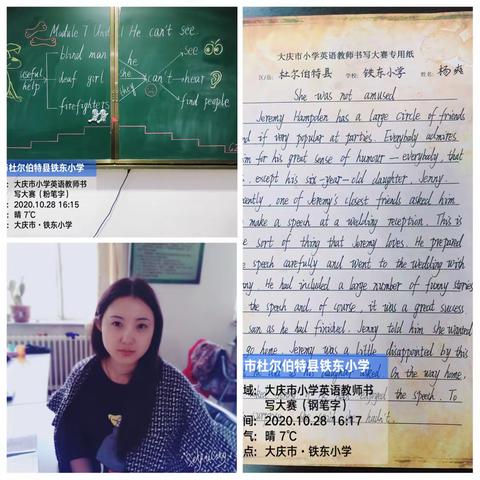 Module 7 Unit 1 He can't see
blind man
deaf girl
firefighters
useful
help
he
she
they
can't
see
hear
find people
市杜尔伯特县铁东小学
大庆市小学英语教师书
写大赛（粉笔字）
2020.10.28 16:15
晴 7℃
大庆市·铁东小学
大庆市小学英语教师书写大赛专用纸
区/县: 杜尔伯特县 学校: 铁东小学 姓名: 杨爽
She was not amused
Jeremy Hampden has a large circle of friends
if very popular at parties. Everybody admires
for his great sense of humour — everybody, that
, except his six-year-old daughter, Jenny.
one of Jeremy's closest friends asked him
make a speech at a wedding reception. This is
sort of thing that Jeremy loves. He prepared
speech carefully and went to the wedding with
He had included a large number of funny stories
the speech and, of course, it was a great success.
soon as he had finished, Jenny told him she wanted
go home. Jeremy was a little disappointed by this
On the way home,
the speech. To
hadn't.
市杜尔伯特县铁东小学
域: 大庆市小学英语教师书
写大赛（钢笔字）
间: 2020.10.28 16:17
气: 晴 7℃
点: 大庆市·铁东小学